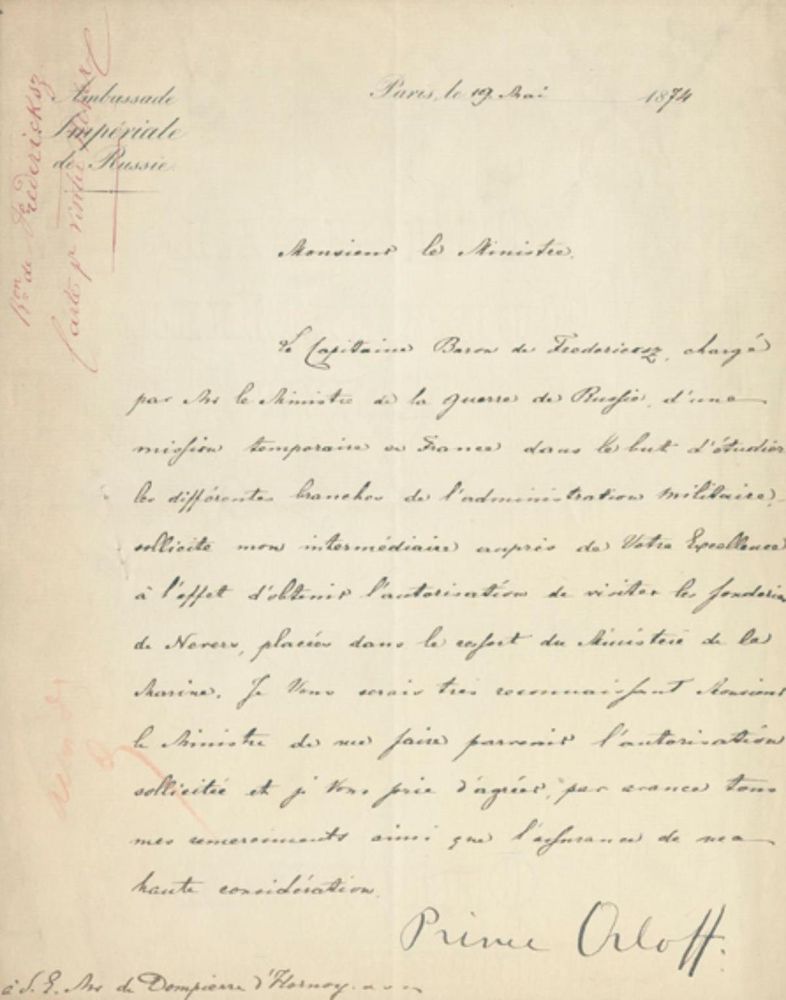 Ambassade
Impériale
de Russie
Paris, le 19 Mai 1874
Bon de Frédéricksz
Carte pr visiter
Monsieur le Ministre,
Le Capitaine Baron de Fredericksz, chargé
par Mr le Ministre de la guerre de Russie, d'une
mission temporaire en France dans le but d'étudier
les différentes branches de l'administration militaire,
sollicite mon intermédiaire auprès de Votre Excellence
à l'effet d'obtenir l'autorisation de visiter les fonderies
de Nevers, placées dans le ressort du Ministère de la
Marine. Je Vous serais très reconnaissant Monsieur
le Ministre de me faire parvenir l'autorisation
sollicitée et je Vous prie d'agréer, par avance tous
mes remerciments ainsi que l'assurance de ma
haute considération.
Prince Orloff.
à S. E. Mr de Dompierre d'Hornoy